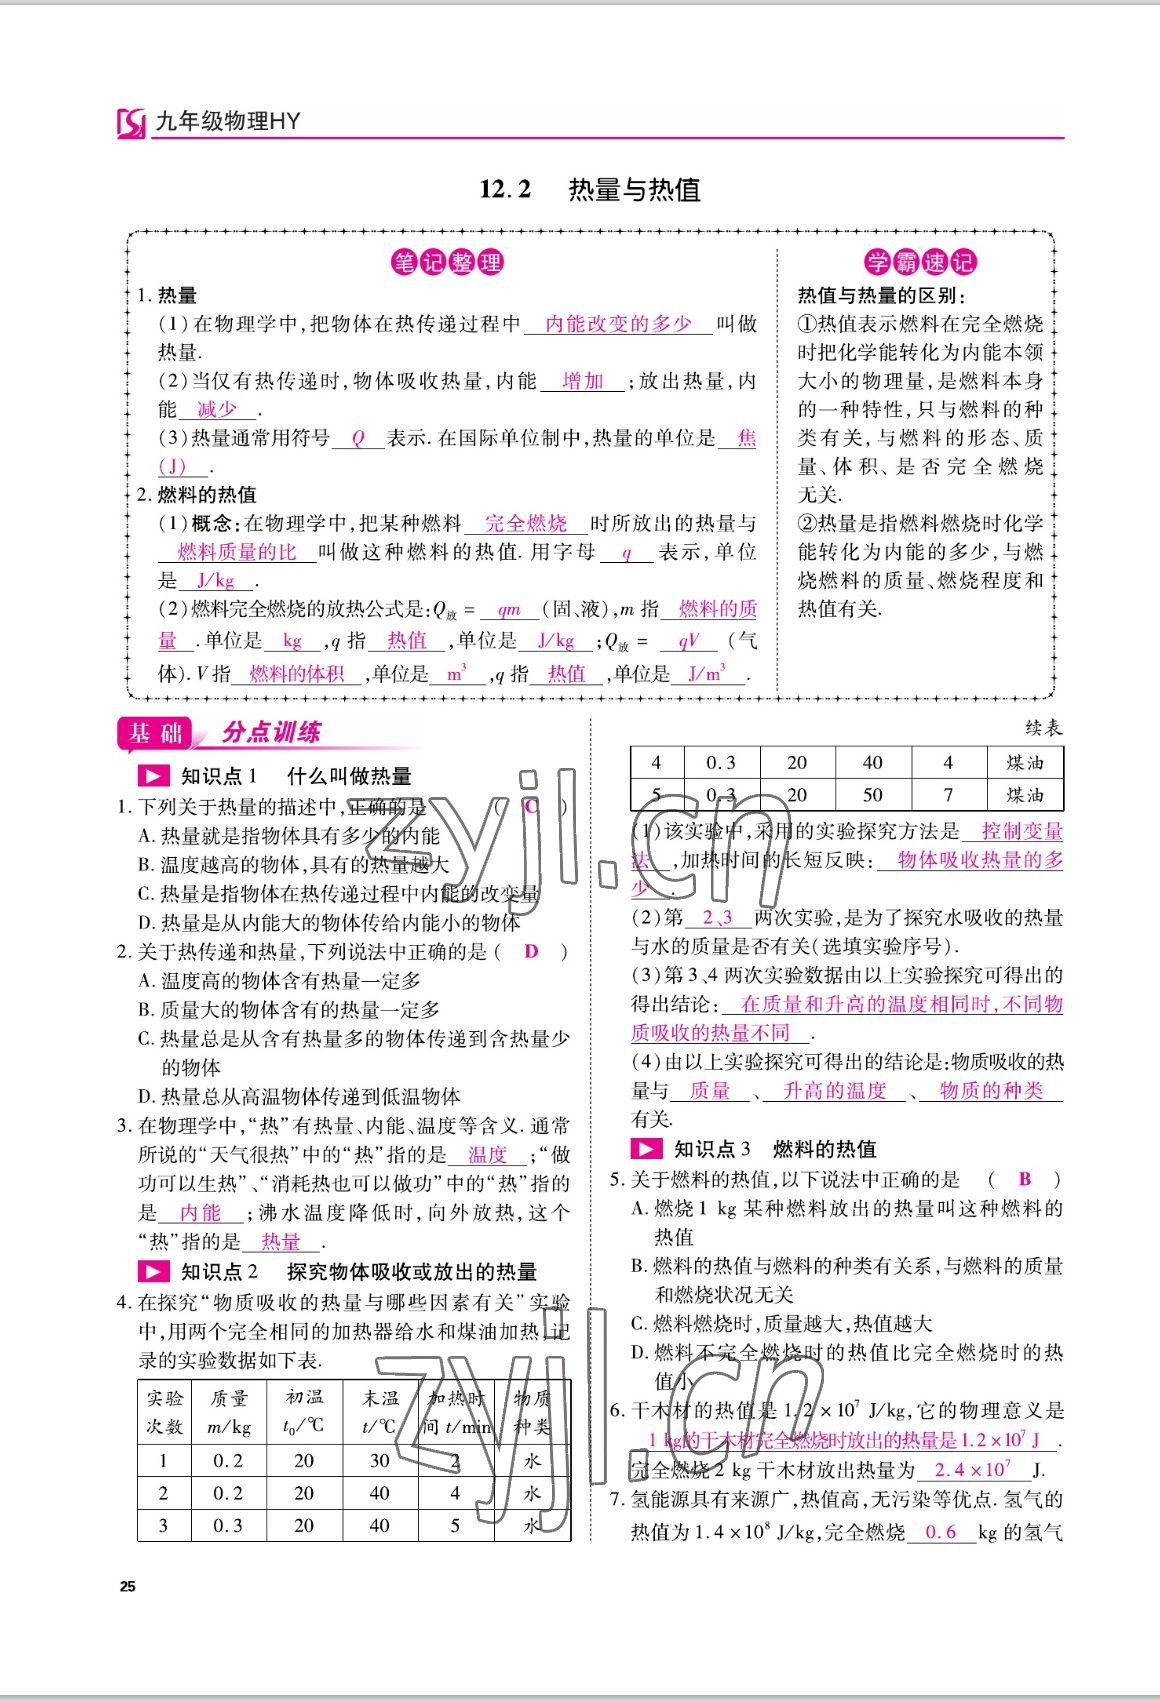 九年级物理HY
12.2 热量与热值
笔记整理
1. 热量
(1)在物理学中,把物体在热传递过程中 内能改变的多少 叫做
热量.
(2)当仅有热传递时,物体吸收热量,内能 增加 ;放出热量,内
能 减少 .
(3)热量通常用符号 Q 表示.在国际单位制中,热量的单位是 焦
(J) .
2. 燃料的热值
(1)概念:在物理学中,把某种燃料 完全燃烧 时所放出的热量与
燃料质量的比 叫做这种燃料的热值. 用字母 q 表示,单位
是 J/kg .
(2)燃料完全燃烧的放热公式是:Q放 = qm (固、液),m 指 燃料的质
量 .单位是 kg ,q 指 热值 ,单位是 J/kg ;Q放 = qV (气
体). V 指 燃料的体积 ,单位是 m³ ,q 指 热值 ,单位是 J/m³ .
学霸速记
热值与热量的区别:
①热值表示燃料在完全燃烧
时把化学能转化为内能本领
大小的物理量,是燃料本身
的一种特性,只与燃料的种
类有关,与燃料的形态、质
量、体积、是否完全燃烧
无关.
②热量是指燃料燃烧时化学
能转化为内能的多少,与燃
烧燃料的质量、燃烧程度和
热值有关.
基础 分点训练
知识点1 什么叫做热量
1. 下列关于热量的描述中,正确的是 ( C )
A. 热量就是指物体具有多少的内能
B. 温度越高的物体,具有的热量越大
C. 热量是指物体在热传递过程中内能的改变量
D. 热量是从内能大的物体传给内能小的物体
2. 关于热传递和热量,下列说法中正确的是 ( D )
A. 温度高的物体含有热量一定多
B. 质量大的物体含有的热量一定多
C. 热量总是从含有热量多的物体传递到含热量少
的物体
D. 热量总从高温物体传递到低温物体
3. 在物理学中,“热”有热量、内能、温度等含义. 通常
所说的“天气很热”中的“热”指的是 温度 ;“做
功可以生热”、“消耗热也可以做功”中的“热”指的
是 内能 ;沸水温度降低时,向外放热,这个
“热”指的是 热量 .
知识点2 探究物体吸收或放出的热量
4. 在探究“物质吸收的热量与哪些因素有关”实验
中,用两个完全相同的加热器给水和煤油加热,记
录的实验数据如下表.
实验 质量 初温 末温 加热时 物质
次数 m/kg t₀/℃ t/℃ 间 t/min 种类
1 0.2 20 30 2 水
2 0.2 20 40 4 水
3 0.3 20 40 5 水
续表
4 0.3 20 40 4 煤油
5 0.3 20 50 7 煤油
(1)该实验中,采用的实验探究方法是 控制变量
法 ,加热时间的长短反映: 物体吸收热量的多
少 .
(2)第 2、3 两次实验,是为了探究水吸收的热量
与水的质量是否有关(选填实验序号).
(3)第3、4两次实验数据由以上实验探究可得出的
得出结论: 在质量和升高的温度相同时,不同物
质吸收的热量不同 .
(4)由以上实验探究可得出的结论是:物质吸收的热
量与 质量 、 升高的温度 、 物质的种类
有关.
知识点3 燃料的热值
5. 关于燃料的热值,以下说法中正确的是 ( B )
A. 燃烧1 kg 某种燃料放出的热量叫这种燃料的
热值
B. 燃料的热值与燃料的种类有关系,与燃料的质量
和燃烧状况无关
C. 燃料燃烧时,质量越大,热值越大
D. 燃料不完全燃烧时的热值比完全燃烧时的热
值小
6. 干木材的热值是1.2×10⁷ J/kg,它的物理意义是
1 kg的干木材完全燃烧时放出的热量是1.2×10⁷ J .
完全燃烧2 kg干木材放出热量为 2.4×10⁷ J.
7. 氢能源具有来源广,热值高,无污染等优点. 氢气的
热值为1.4×10⁸ J/kg,完全燃烧 0.6 kg 的氢气
25
zyjl.cn
zyjl.cn